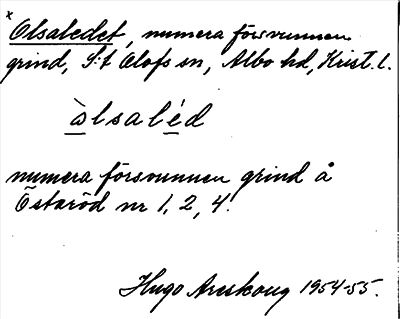 x
Olsaledet, numera försvunnen
grind, S:t Olofs sn, Albo hd, Krist. l.
òlsaléd
numera försvunnen grind å
Östaröd nr 1, 2, 4.
Hugo Areskoug 1954-55.